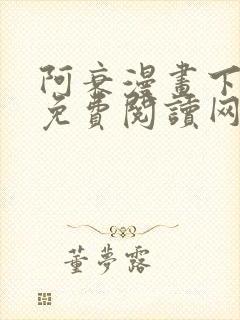 阿衰漫畫下
免費閱讀网
董夢露